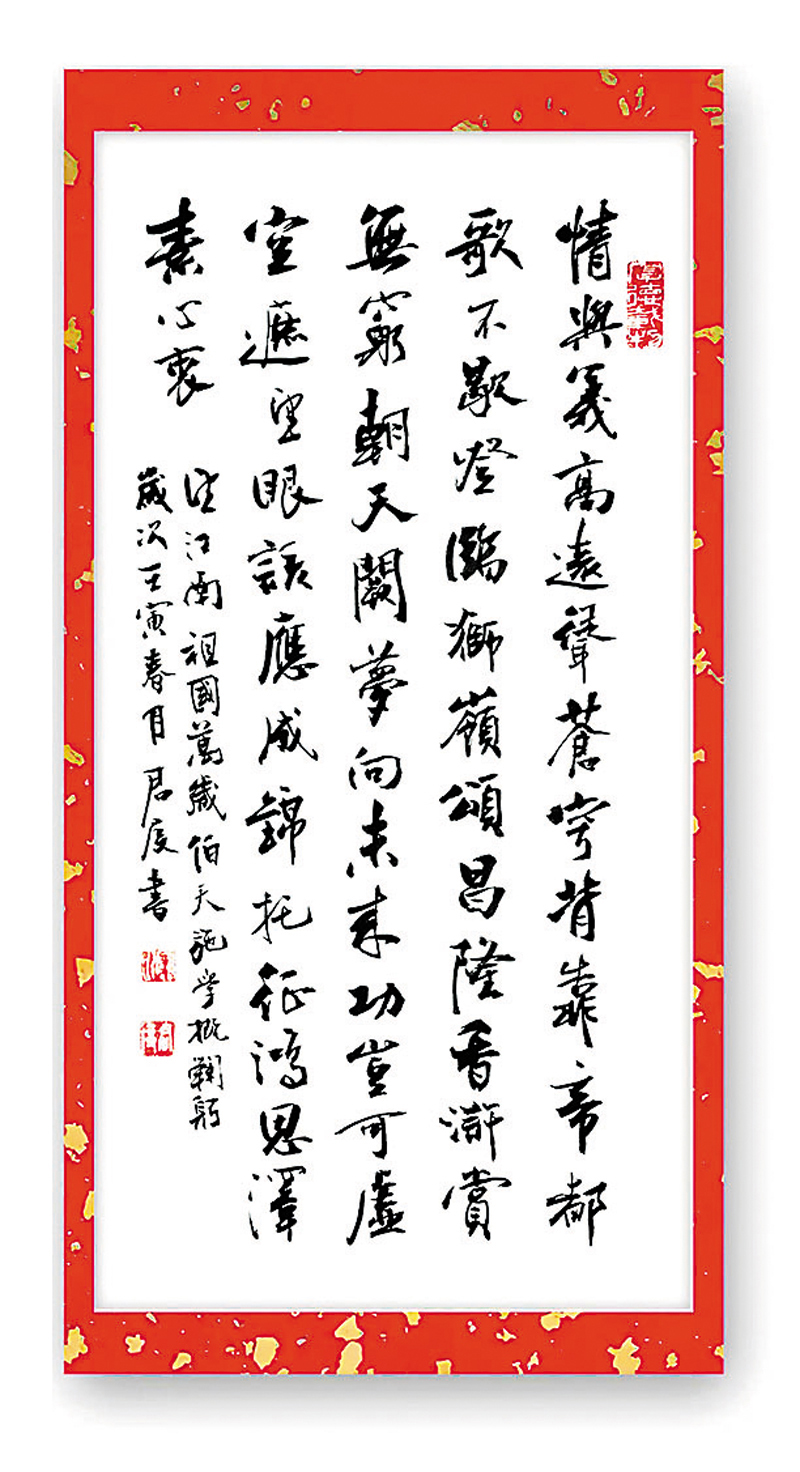 情與義高遠聳蒼穹背靠帝都
歌不歇登臨獅嶺頌昌隆香滸賞
無窮朝天闕夢向未來功豈可虛
空遮望眼該應成錦托征鴻恩澤
素心衷
望江南祖國萬歲伯天施学概鞠躬
歲次壬寅春月君度書